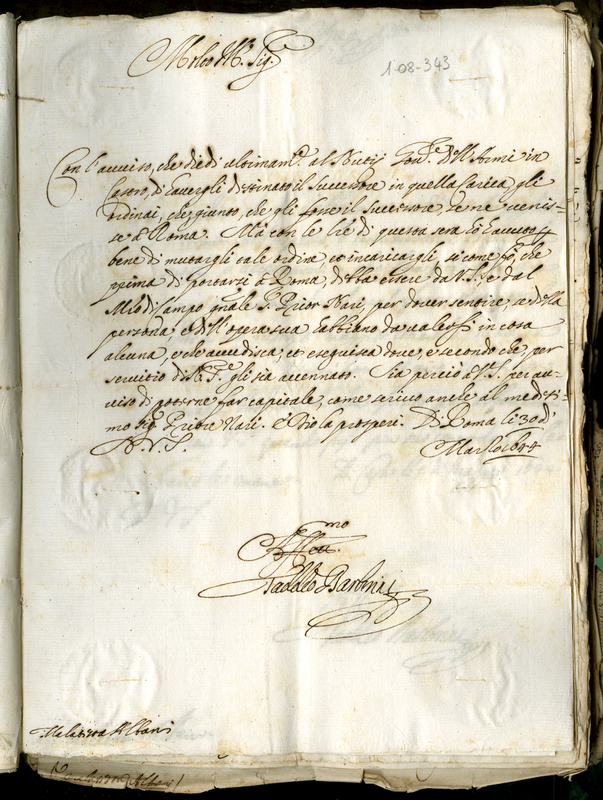 Molto Ill. Sig.re
1-08-343
Con l'avviso, che diedi ultimam.te al Nutij Gov.re dell'Armi in
Pesaro, d'havergli destinato il Successore in quella Carica, gli
ordinai, che giunto, che gli fosse il Successore, se ne venis=
se à Roma. Ma con le l're di questa sera hò havuto
bene di mutargli tale ordine, et incaricargli, si come fò, che
prima di portarsi à Roma, debba essere da V.S., e dal
M'ro di Campo gn'ale S. Prior Nari, per dover sentire, se della
persona, e dell'opera sua habbiano da valersi in cosa
alcuna, e che avvedisca, et eseguisca dove, e secondo che, per
servitio di N. S.re gli sia accennato. Sia perciò à V.S. per av=
viso di poterne far capitale, come scrivo anche al medesi=
mo Sig. Priore Nari. e Dio la prosperi. Di Roma li 30 di
A. V. S. Marzo 1644
Aff.mo
Taddeo Barberini
Malatesta Albani